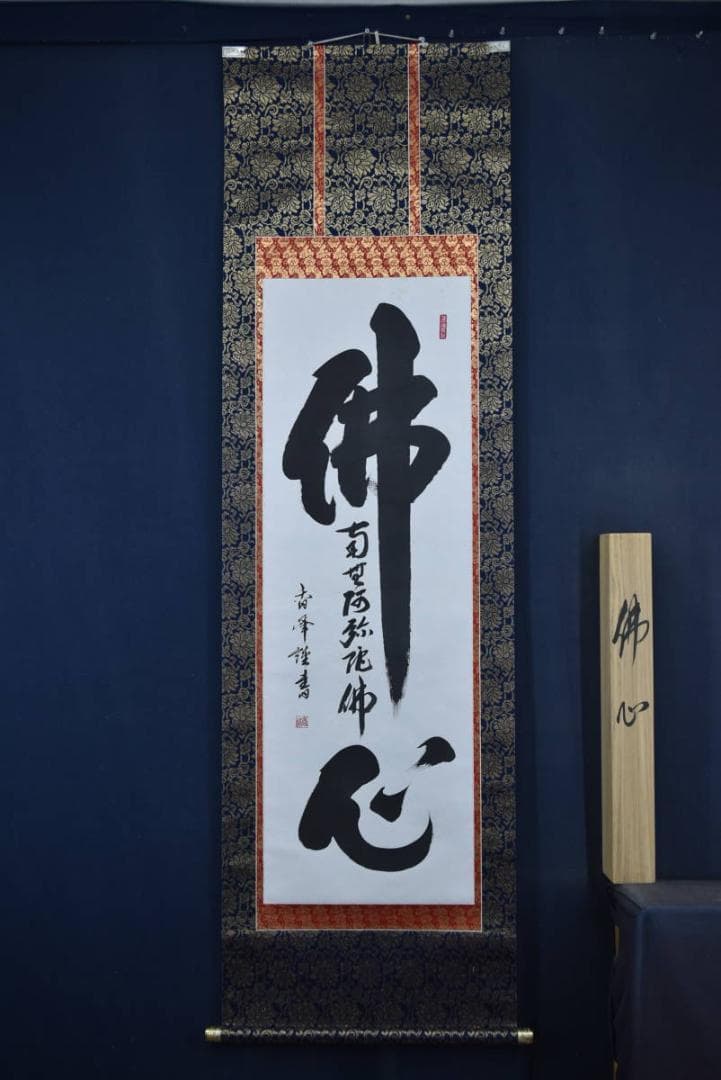 佛心
南無阿弥陀佛
春峰謹書
佛心